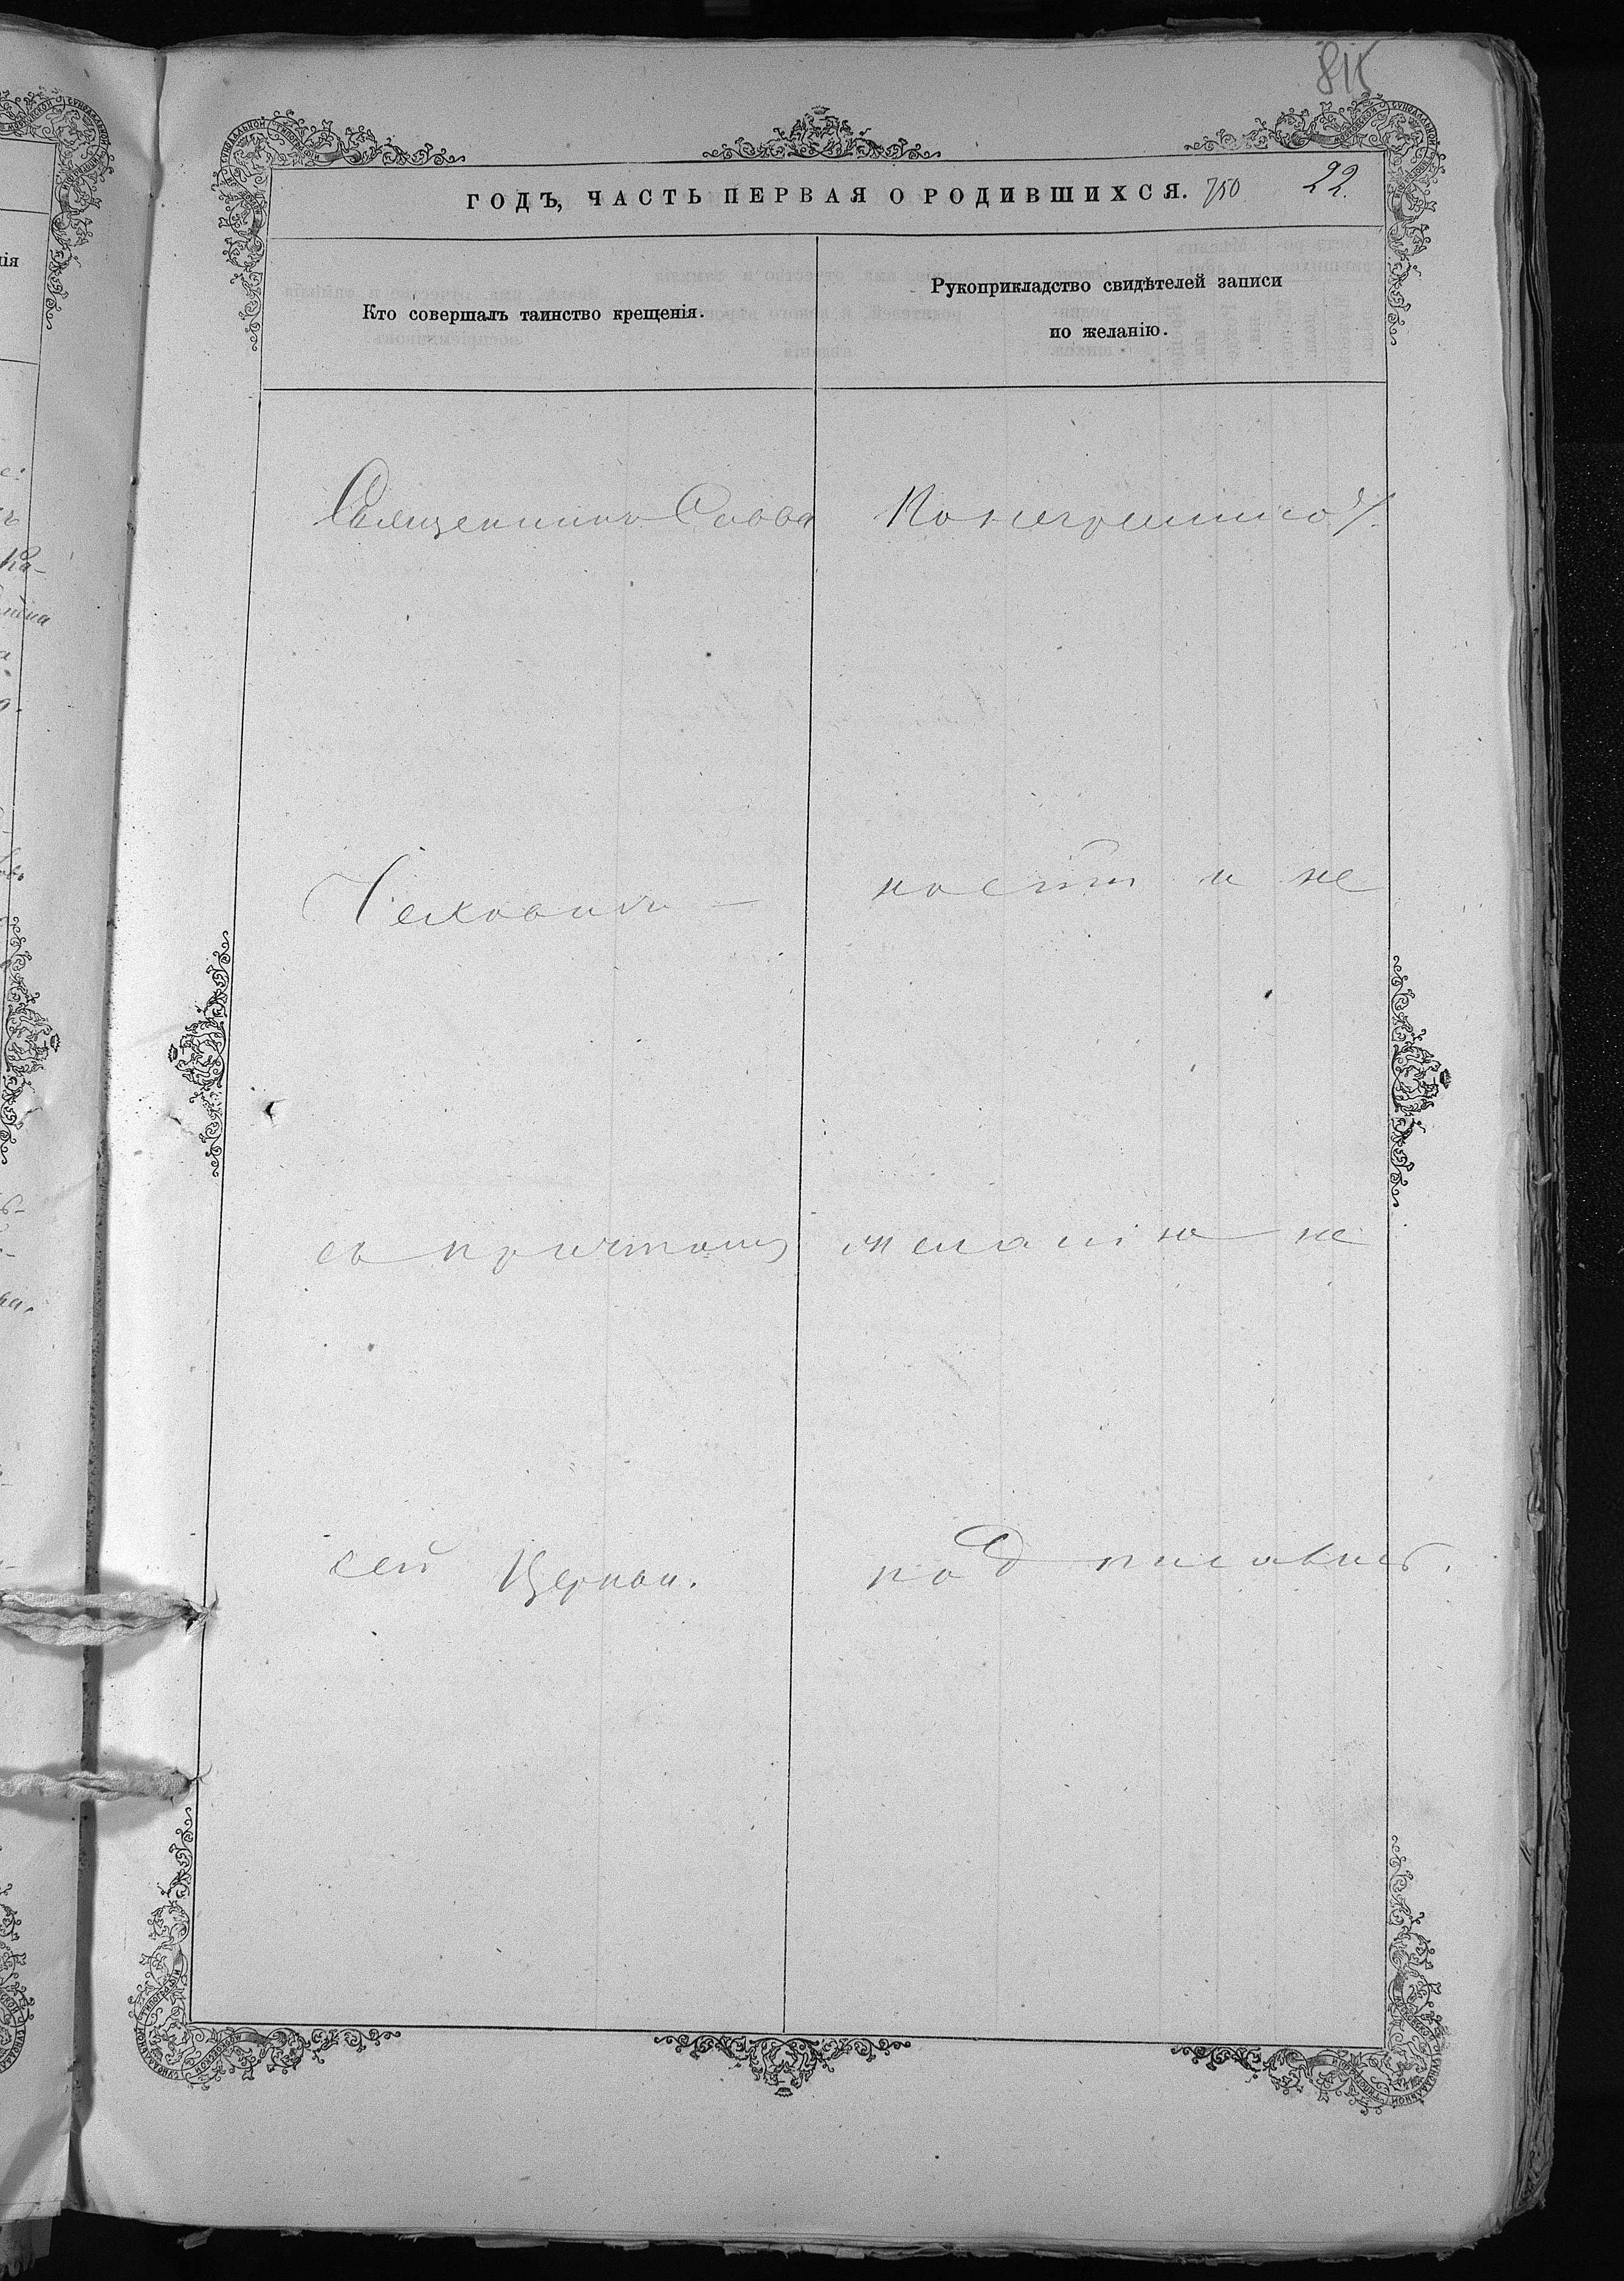 815
ГОДЪ, ЧАСТЬ ПЕРВАЯ О РОДИВШИХСЯ. 750 22.
Кто совершалъ таинство крещенія.
Рукоприкладство свидѣтелей записи
по желанію.
Священникъ Савва
сь причтомъ
сей Церкви.
По неграмотно
ности и не
желанію не
подписались.